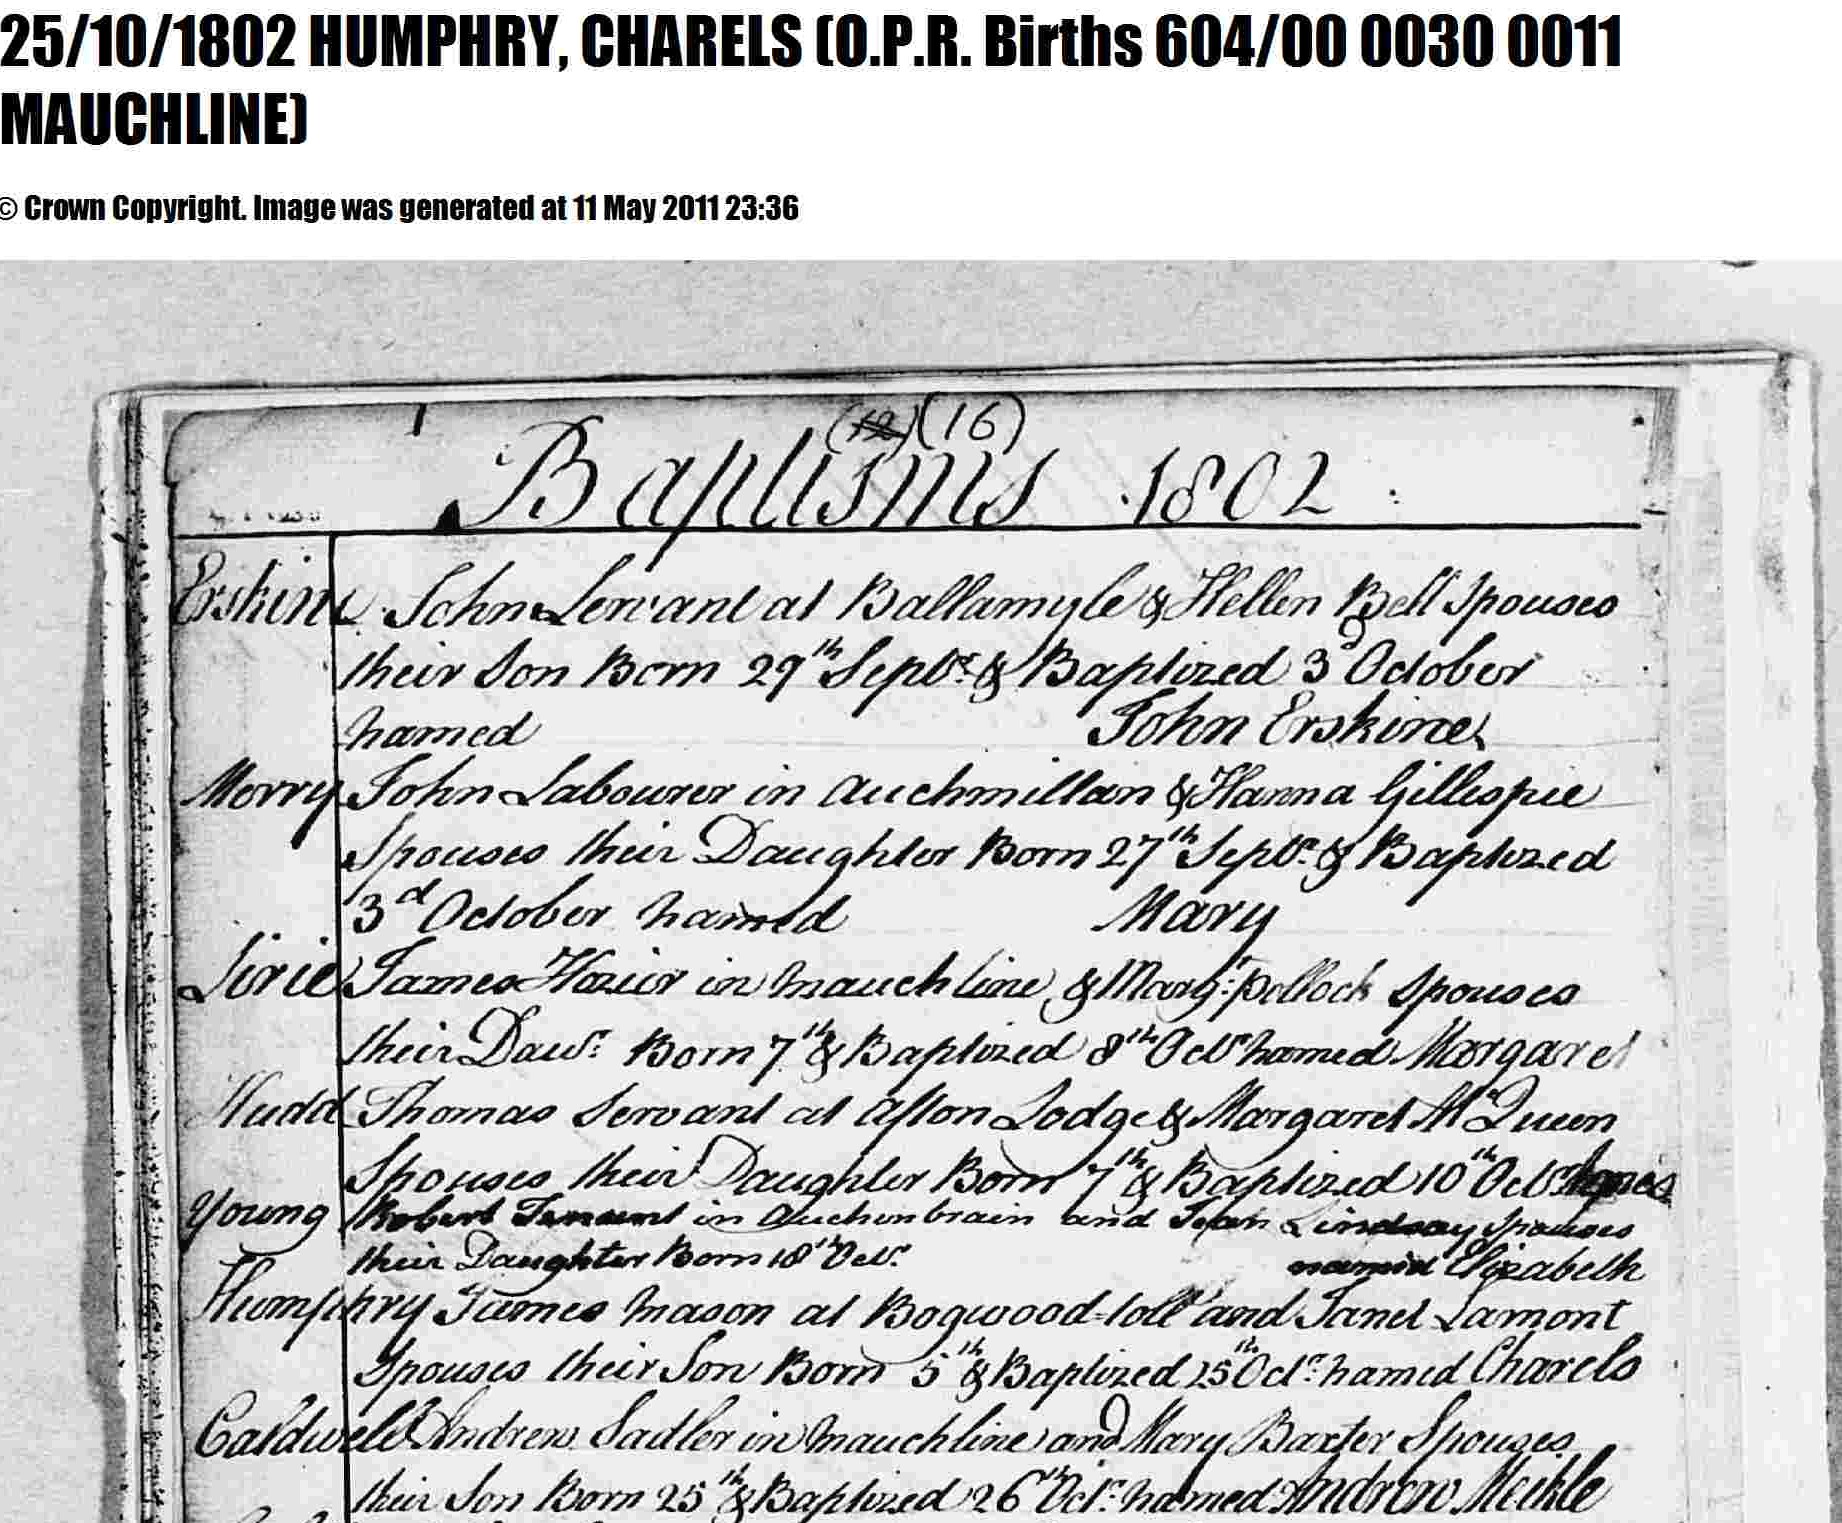 25/10/1802 HUMPHRY, CHARELS (O.P.R. Births 604/00 0030 0011
MAUCHLINE)
© Crown Copyright. Image was generated at 11 May 2011 23:36
(12) (16)
Baptisms 1802
Erskine John Servant at Ballamyle & Hellen Bell Spouses
their Son Born 29th Septr. & Baptized 3d October
named John Erskine
Merry John Labourer in Auchmillan & Hanna Gillespie
Spouses their Daughter Born 27th Septr. & Baptized
3d October named Mary
Sirie James Hozier in Mauchline, & Margt. Pollock Spouses
their Dawr. Born 7th & Baptized 8th Octr named Margaret
Hudd Thomas Servant at Afton Lodge & Margaret McQueen
Spouses their Daughter Born 7th & Baptized 10th Octr Agnes
Young Robert Tenant in Auchinbrain and Jean Lindsay Spouses
their Daughter Born 18th Octr. named Elizabeth
Humphry James Mason at Bogwood-toll and Janet Lamont
Spouses their Son Born 5th & Baptized 25th Octr. named Charels
Caldwell Andrew Sadler in Mauchline and Mary Baxter Spouses
their Son Born 25th & Baptized 26th Octr. named Andrew Meikle